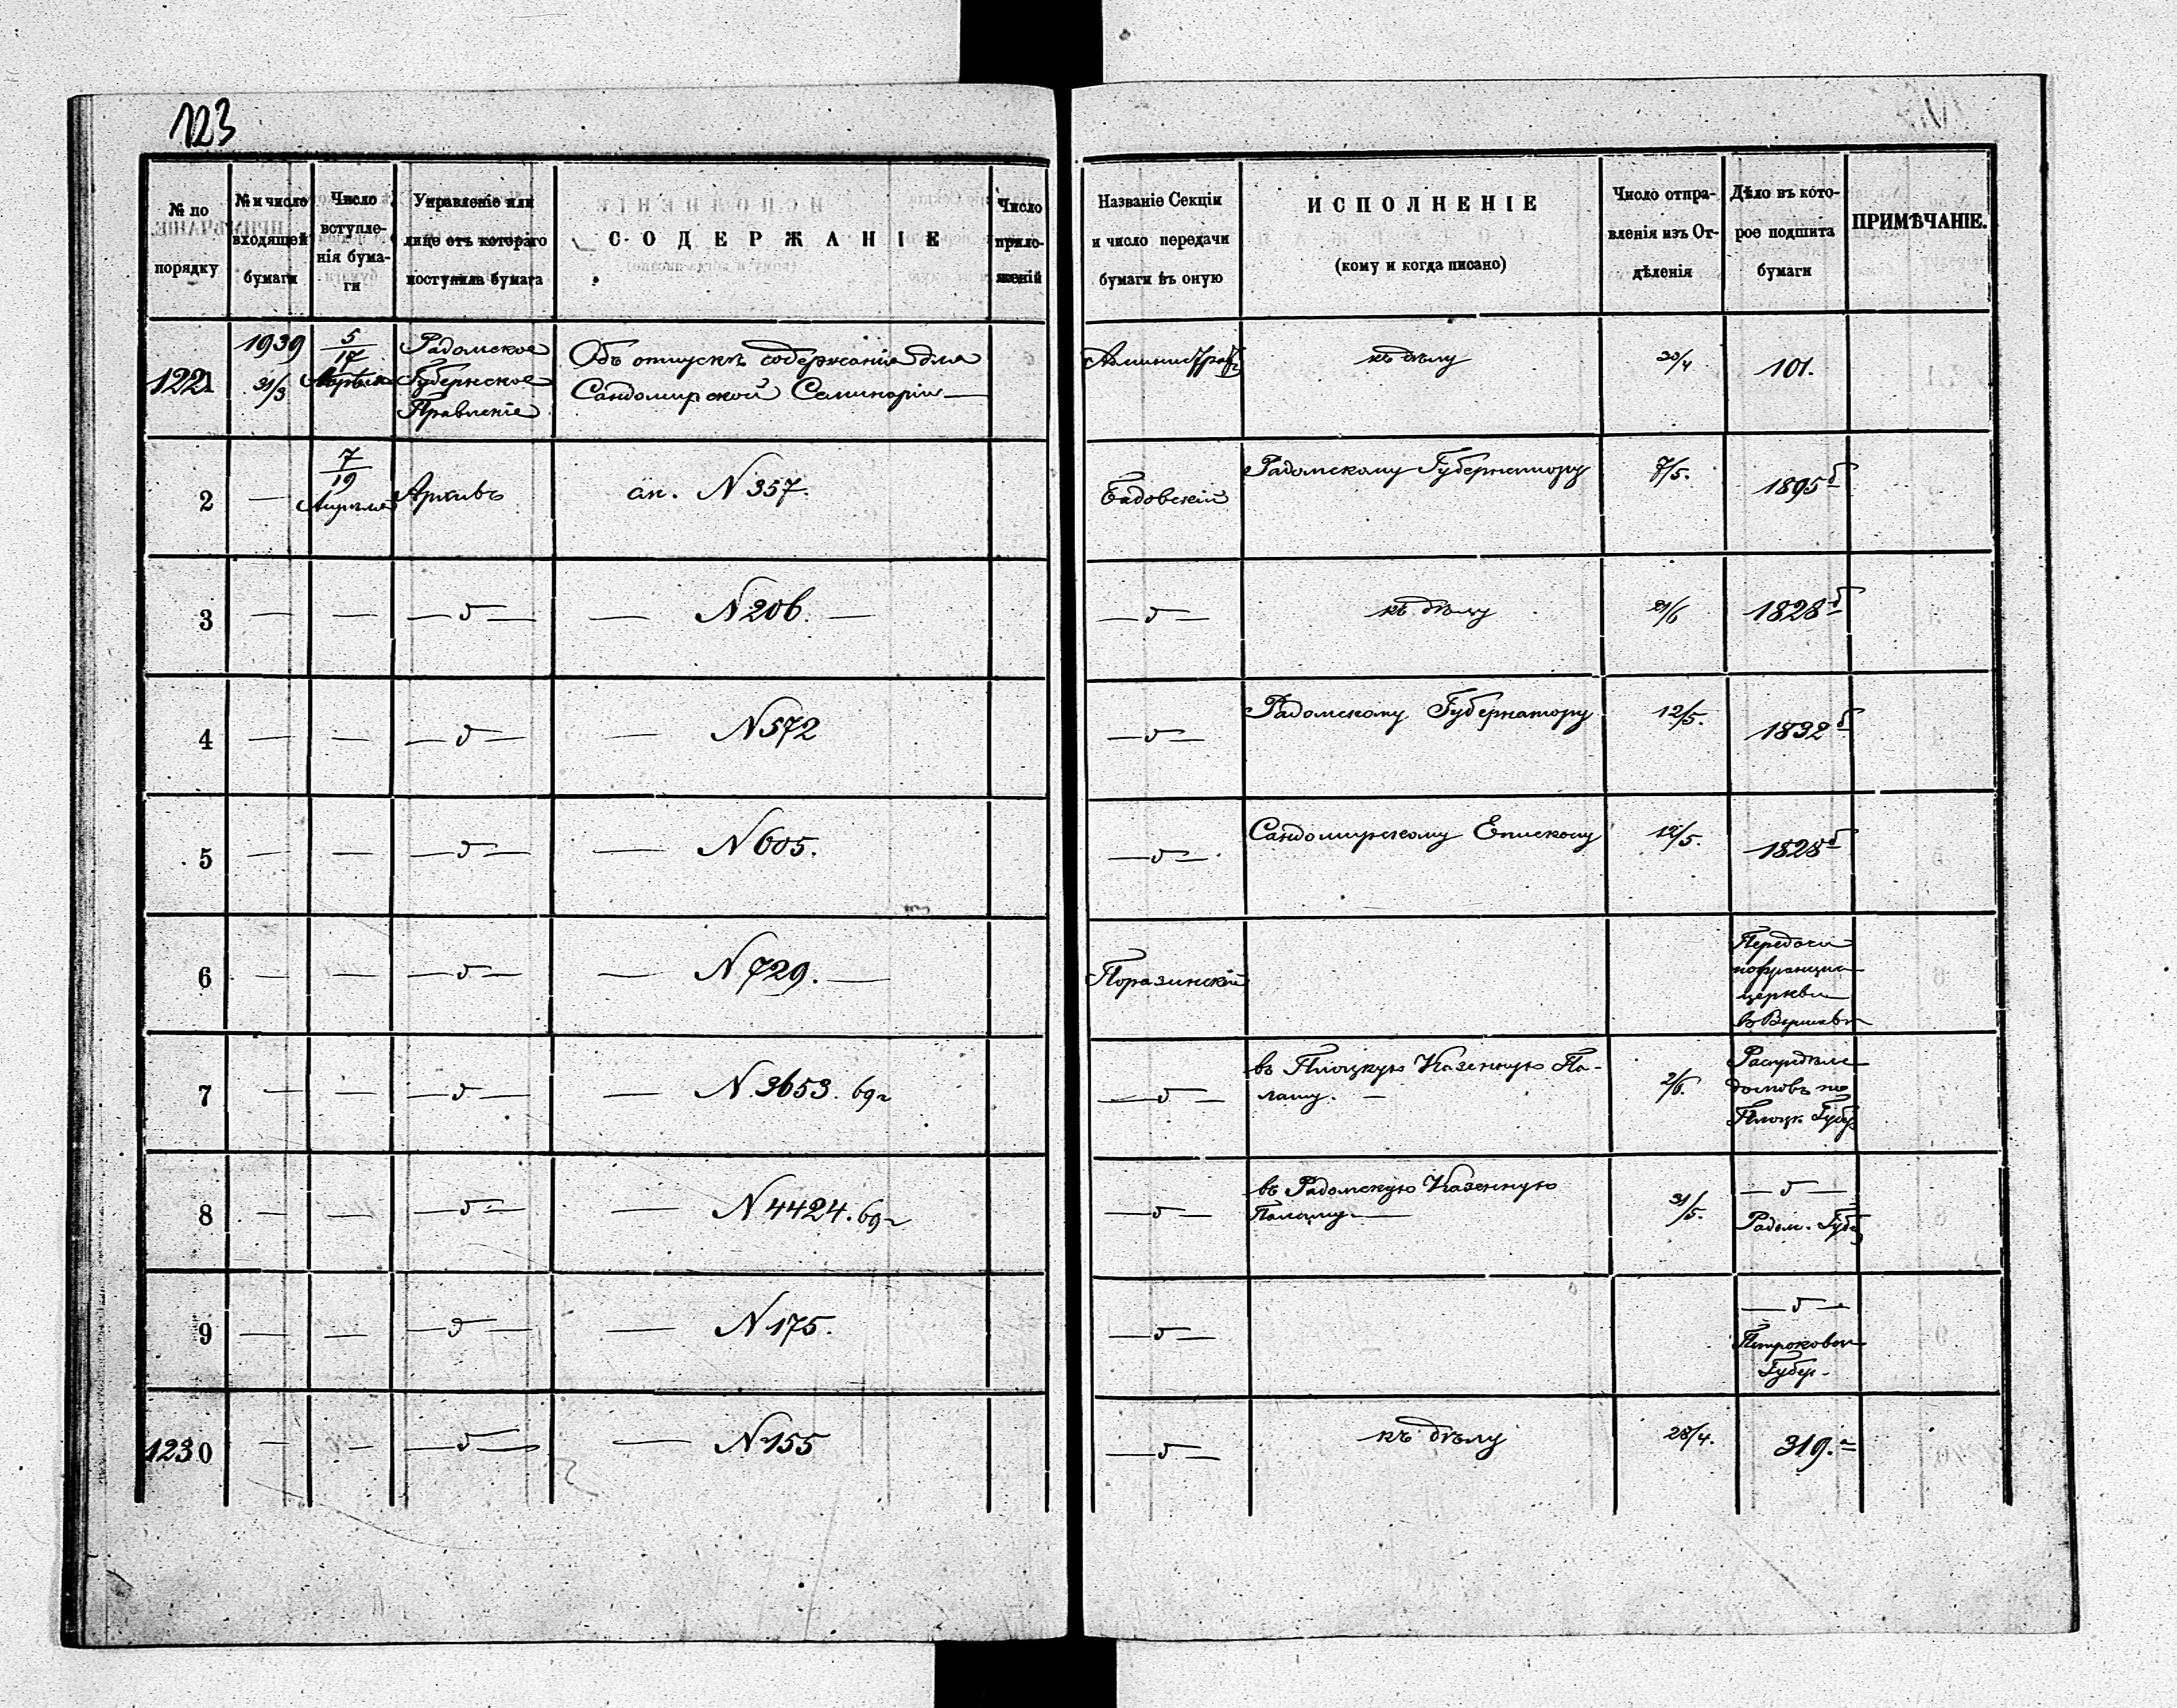 123
№ по порядку
№ и число входящей бумаги
Число вступленія бумаги
Управленіе или лице отъ котораго поступила бумага
СОДЕРЖАНІЕ
Число приложеній
Названіе Секціи и число передачи бумаги въ оную
ИСПОЛНЕНІЕ
(кому и когда писано)
Число отправленія изъ Отдѣленія
Дѣло въ которое подшита бумаги
ПРИМѢЧАНІЕ.
1221
1939
31/3
5/17
Радомское
Губернское
Правленіе
Объ отпускѣ содержанія для
Сандомирской Семинаріи —
къ дѣлу
20/4
101.
2
—
7/19
Апрѣля
Архивъ
ап. N 357.
Радомскому Губернатору
7/5.
1895 б
3
— — — д —
— N 206. —
— д —
къ дѣлу
21/6
1828 б
4
— — — д —
— N 572
— д —
Радомскому Губернатору
12/5.
1832 б
5
— — — д —
— N 605.
— д —
Сандомирскому Епископу
12/5.
1828 б
6
— — — д —
— N 729. —
Поразинскій
церкви
7
— — — д —
— N 3653. 69 г
— д —
въ Плоцкую Казенную Па-
лату. —
2/6.
домовъ по
Плоцк. Губ.
8
— — — д —
— N 4424. 69 г
— д —
въ Радомскую Казенную
Палату —
31/5.
— д —
Радом. Губ.
9
— — — д —
— N 175.
— д —
— д —
Петроковск
Губер.
1230
— — — д —
— N 155
— д —
къ дѣлу
28/4.
319. а